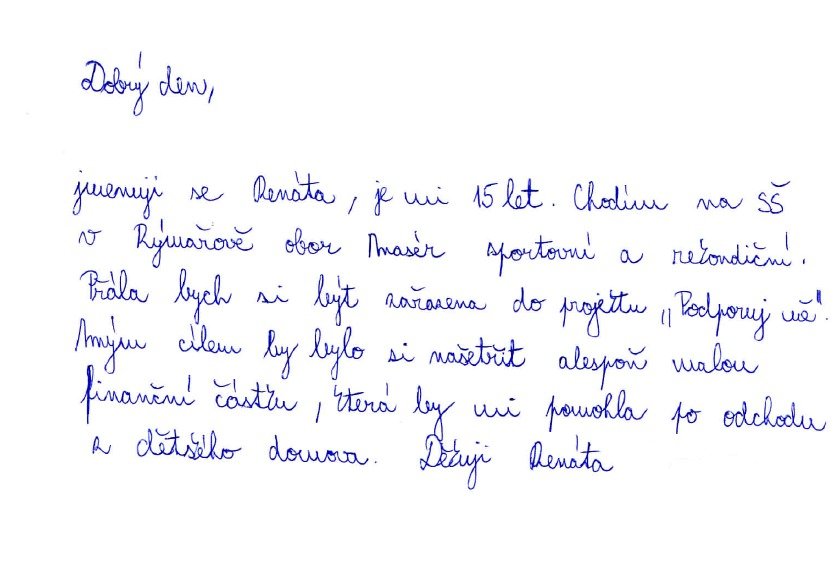 Dobrý den,
jmenuji se Renáta, je mi 15 let. Chodím na SŠ
v Rýmařově obor masér sportovní a rekondiční.
Přála bych si být zařazena do projektu „Podporuj mě".
Mým cílem by bylo si našetřit alespoň malou
finanční částku, která by mi pomohla po odchodu
z dětského domova. Děkuji Renáta